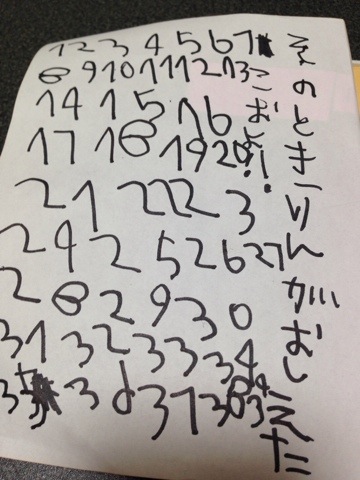 そのときりんがおしえた
こおよ!!
1 2 3 4 5 6 7
8 9 10 11 12 13
14 15 16
17 18 19 20
21 22 23
24 25 26 27
28 29 30
31 32 33 34
35 36 37 38 39